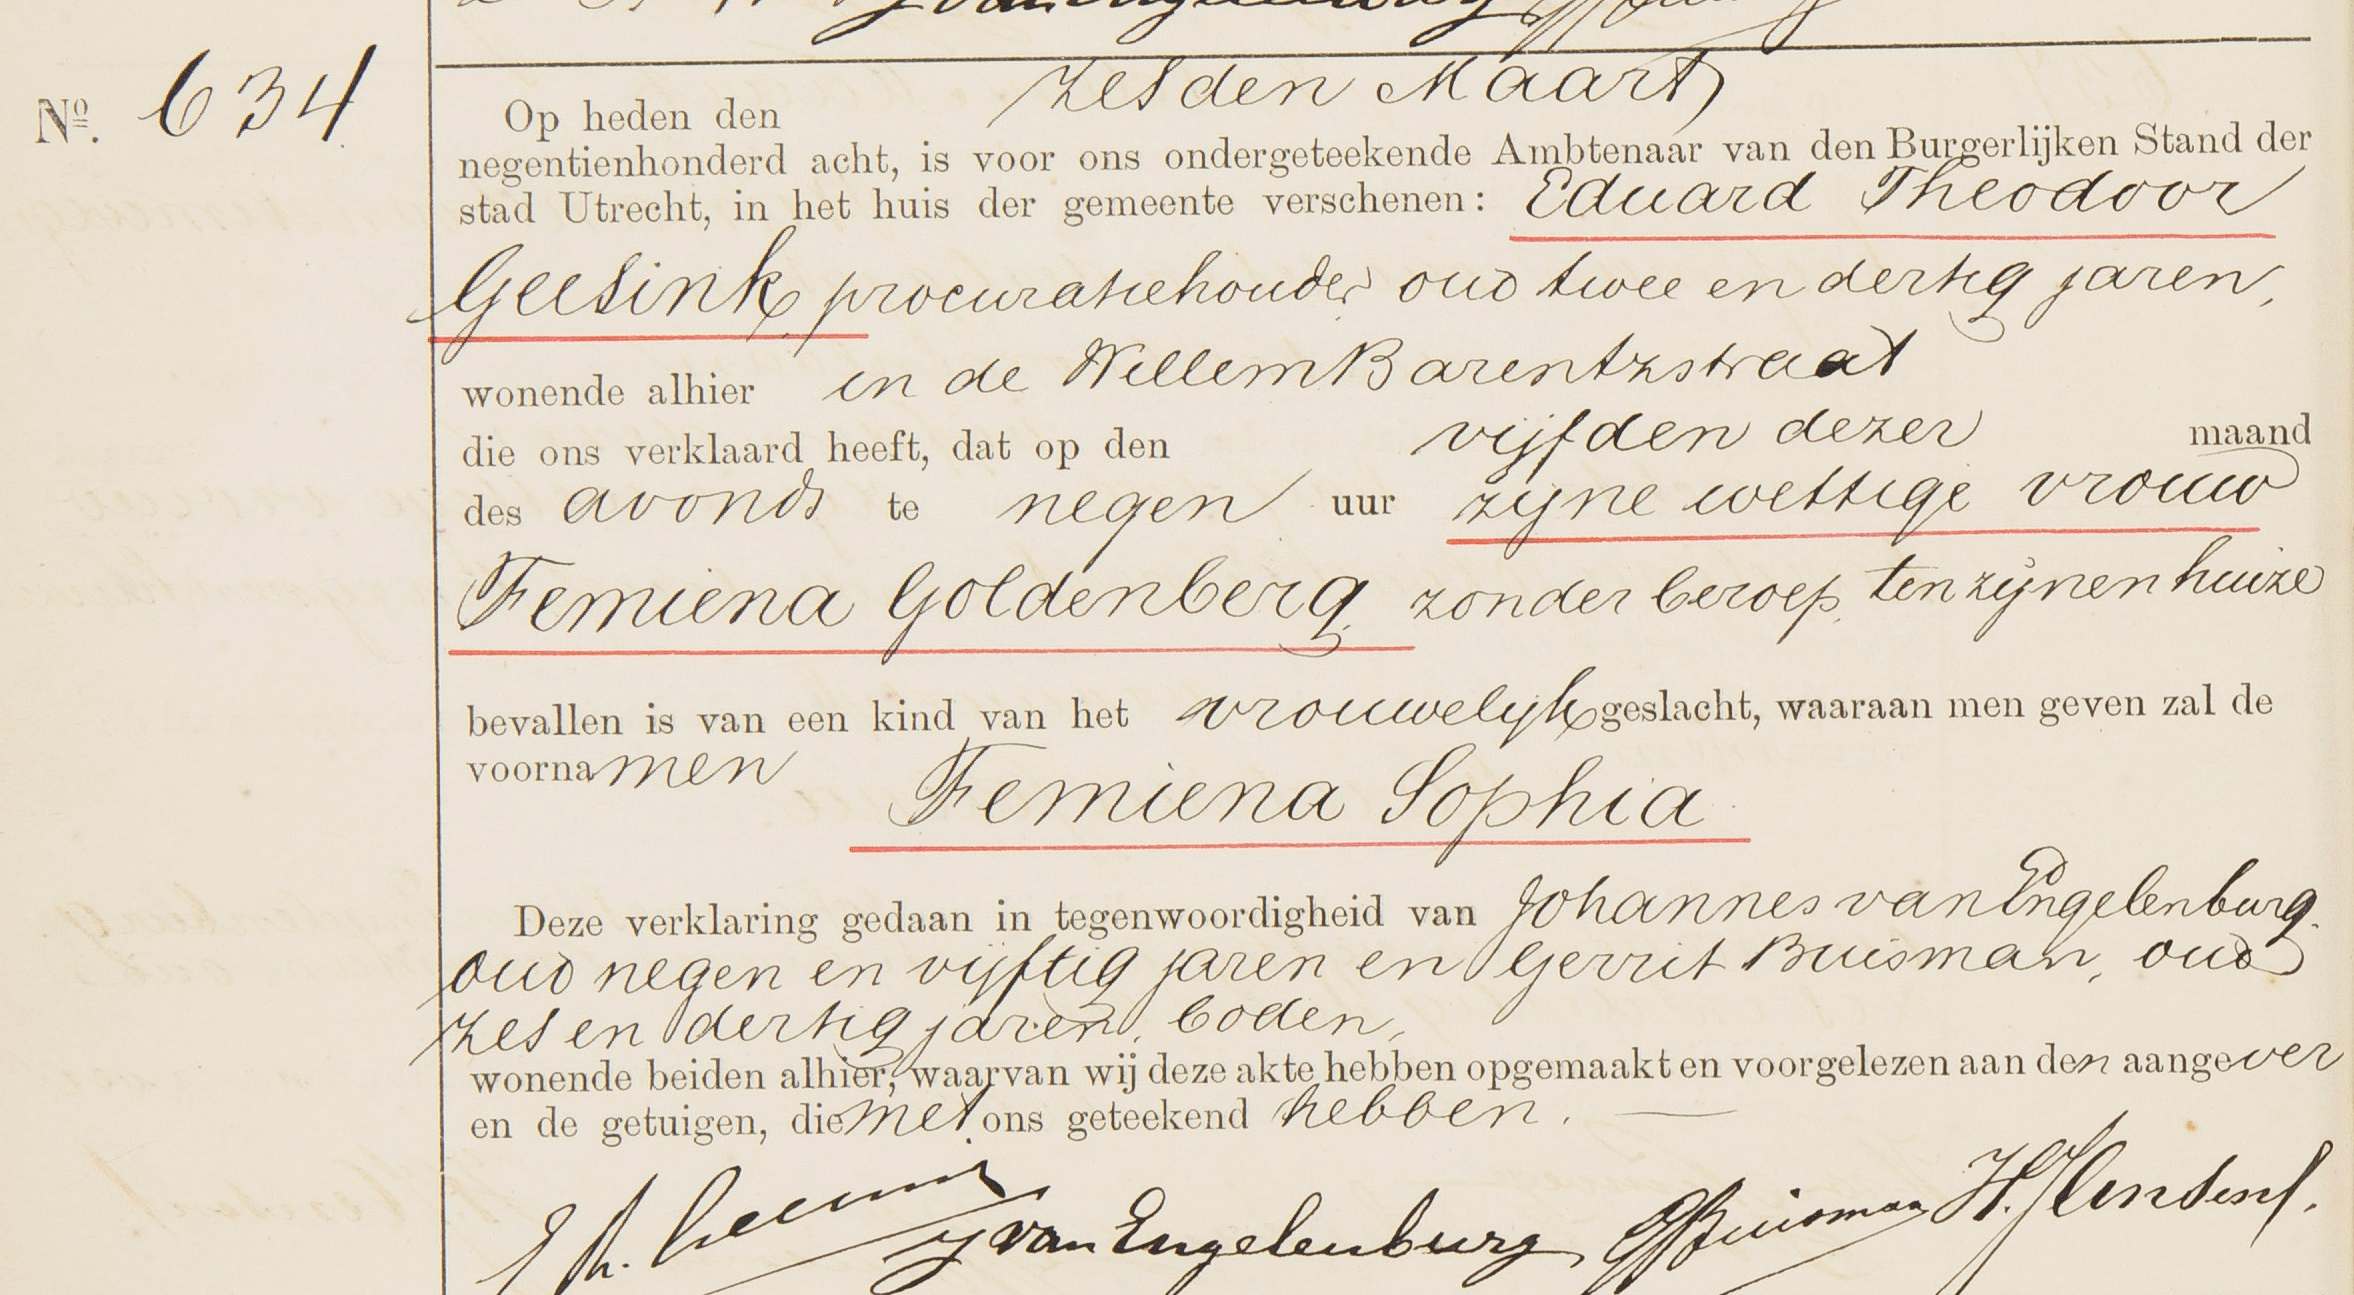 van Engelenburg
Nº. 634
Op heden den zesden Maart
negentienhonderd acht, is voor ons ondergeteekende Ambtenaar van den Burgerlijken Stand der
stad Utrecht, in het huis der gemeente verschenen: Eduard Theodoor
Geesink, procuratiehouder oud twee en dertig jaren,
wonende alhier in de Willem Barentzstraat
die ons verklaard heeft, dat op den vijfden dezer maand
des avonds te negen uur zijne wettige vrouw
Femiena Goldenberg, zonder beroep, ten zijnen huize
bevallen is van een kind van het vrouwelijk geslacht, waaraan men geven zal de
voornamen Femiena Sophia
Deze verklaring gedaan in tegenwoordigheid van Johannes van Engelenburg.
oud negen en vijftig jaren en Gerrit Buisman, oud
zes en dertig jaren, boden,
wonende beiden alhier, waarvan wij deze akte hebben opgemaakt en voorgelezen aan den aangever
en de getuigen, die met ons geteekend hebben.
J van Engelenburg GBuisman